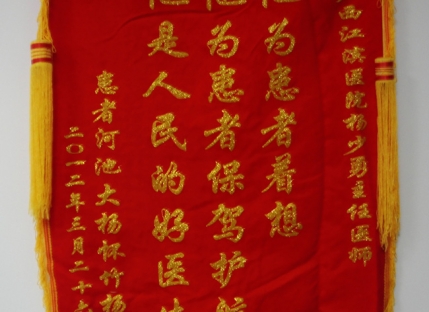 西江滨医院杨少勇主任医师
为患者着想
为患者保驾护航
是人民的好医
患者河池大杨怀竹杨
二〇一二年三月二十